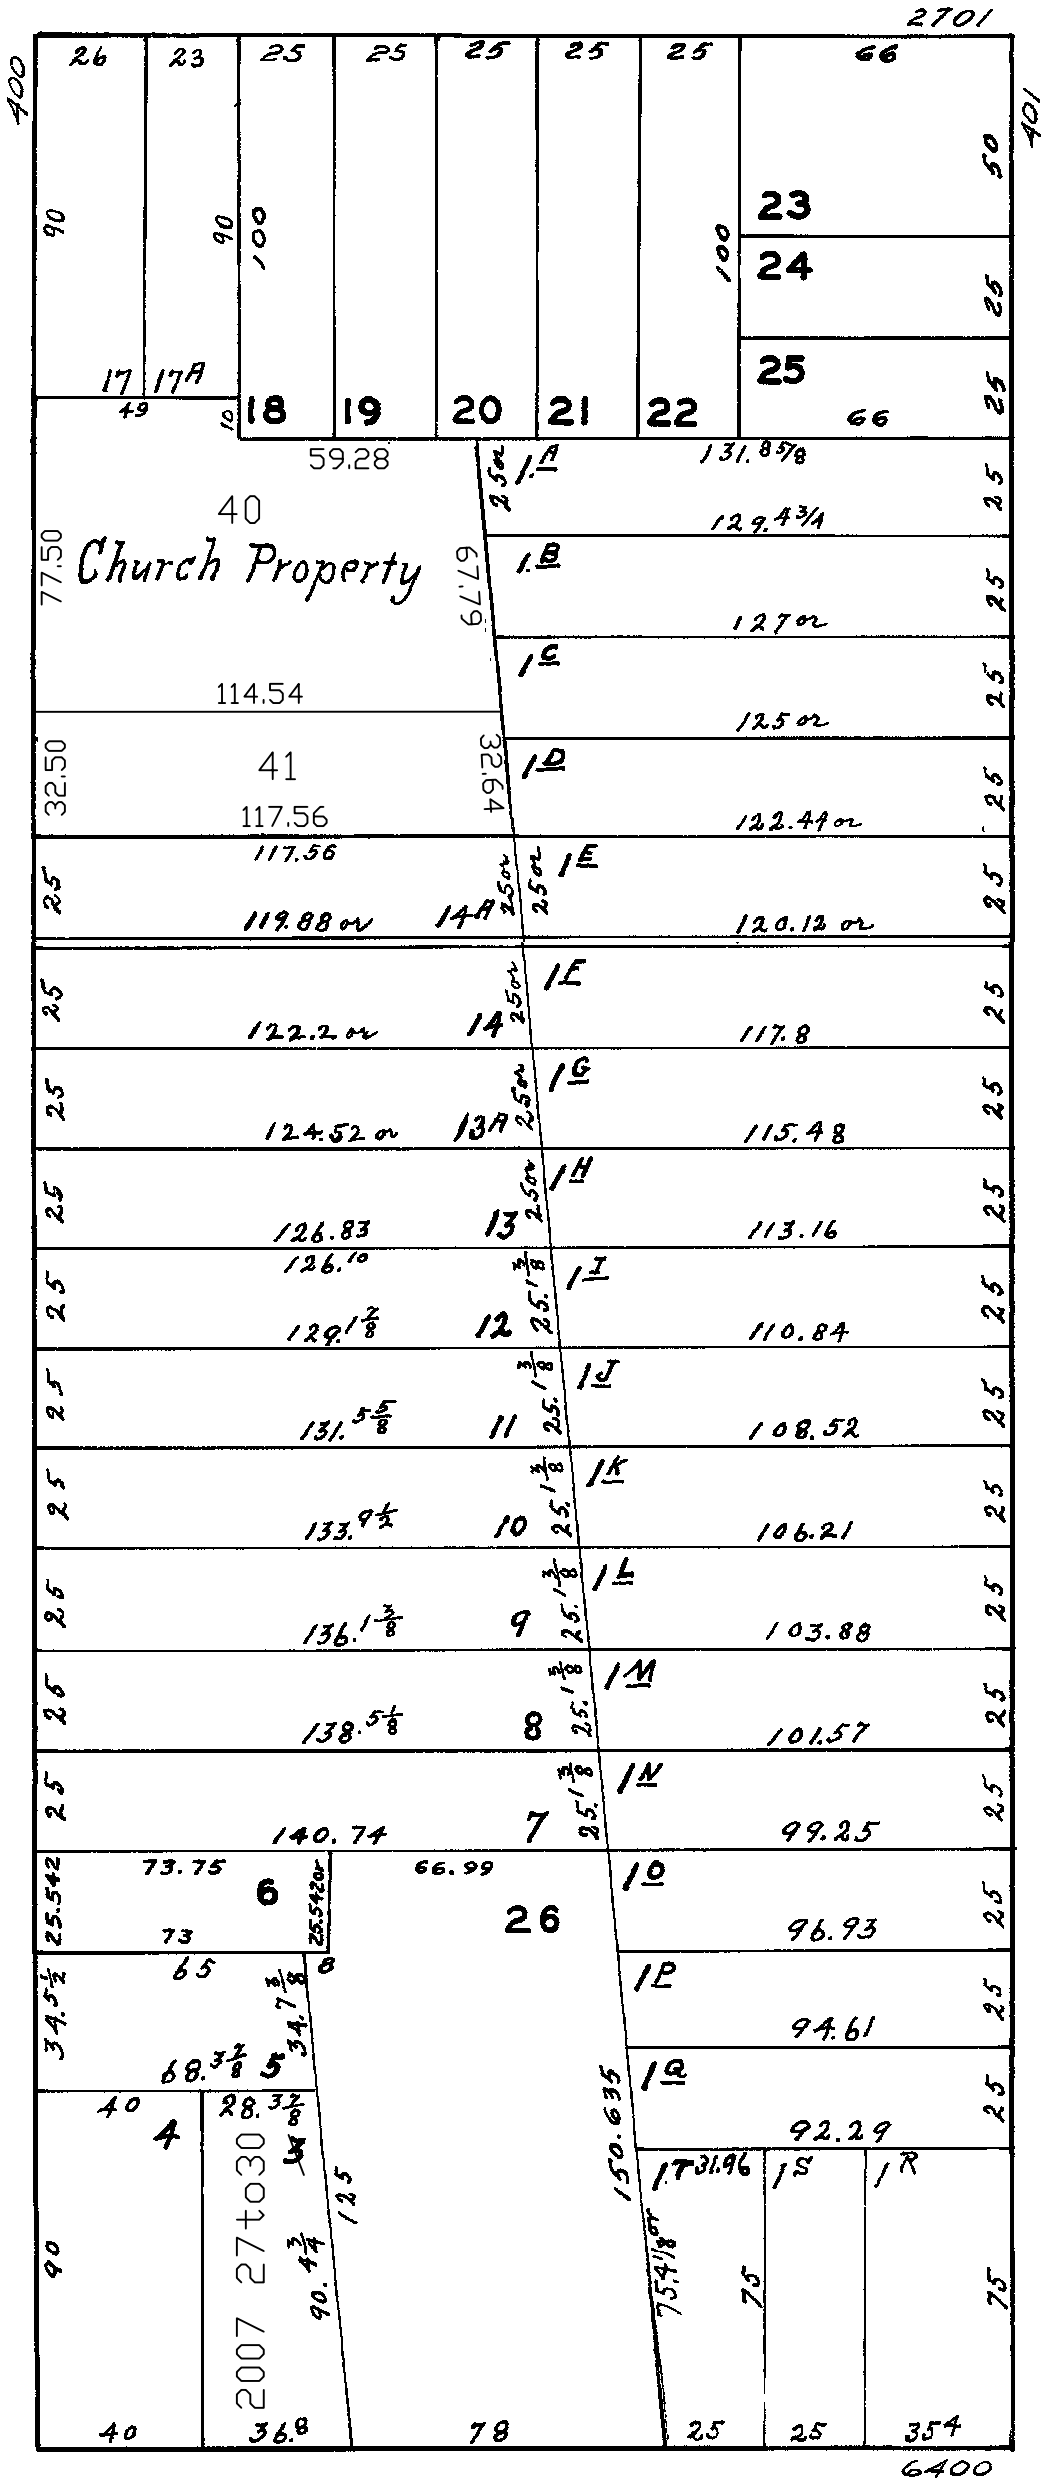 2701
400
26 23 25 25 25 25 25 66
401
50
90 90 100 100
23
24
25
17 17A
25
25
49 10 18 19 20 21 22 66
59.28 25or 1.A 131.8 5/8
25
40
129.4 3/4
77.50 Church Property 67.79 1.B
25
127or
1C
25
114.54
125or
32.50 41 32.64 1D
25
117.56
122.44or
117.56
25 25or 25or 1E 25
119.88or 14A 120.12or
25 25or 1F 25
122.2or 14 117.8
25 25or 1G 25
124.52or 13A 115.48
25 25or 1H 25
126.83 13 113.16
126.10
25 25.1 3/8 1I 25
129.1 2/8 12 110.84
25 25.1 3/8 1J 25
131.5 5/8 11 108.52
25 25.1 3/8 1K 25
133.9 1/2 10 106.21
25 25.1 3/8 1L 25
136.1 3/8 9 103.88
25 25.1 3/8 1M 25
138.5 1/8 8 101.57
25 25.1 3/8 1N 25
140.74 7 99.25
73.75 66.99
25.542 6 25.542or 26 1O 25
73 96.93
65 8
34.5 1/2 34.7 3/8 1P 25
94.61
68.3 2/8 5
150.635 1Q 25
40 28.3 2/8
4 92.29
2007 27to30
125
1.T 31.96 1S 1R
90 90.4 3/4 75.4 1/8or 75 75
40 36.8 78 25 25 354
6400